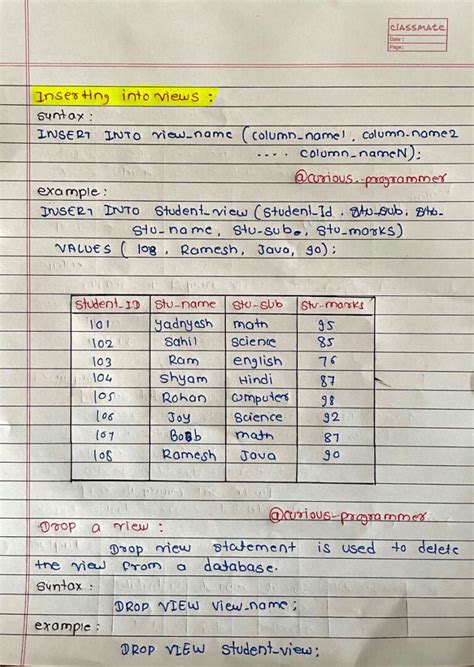 classmate
Date :
Page :
Inserting into views :
syntax :
INSERT INTO view_name (column_name1, column_name2
.... column_nameN);
@curious_programmer
example :
INSERT INTO Student_view (Student_Id, stu_sub, stu_
stu_name, stu_sub, stu_marks)
VALUES ( 108, Ramesh, Java, 90);
Student_ID Stu_name Stu_Sub Stu_marks
101 yadnyesh math 95
102 Sahil science 85
103 Ram english 76
104 Shyam Hindi 87
105 Rohan computer 98
106 Joy Science 92
107 Bobb math 87
108 Ramesh Java 90
@curious_programmer
Drop a view :
Drop view statement is used to delete
the view from a database.
Syntax :
DROP VIEW view_name ;
example :
DROP VIEW student_view;